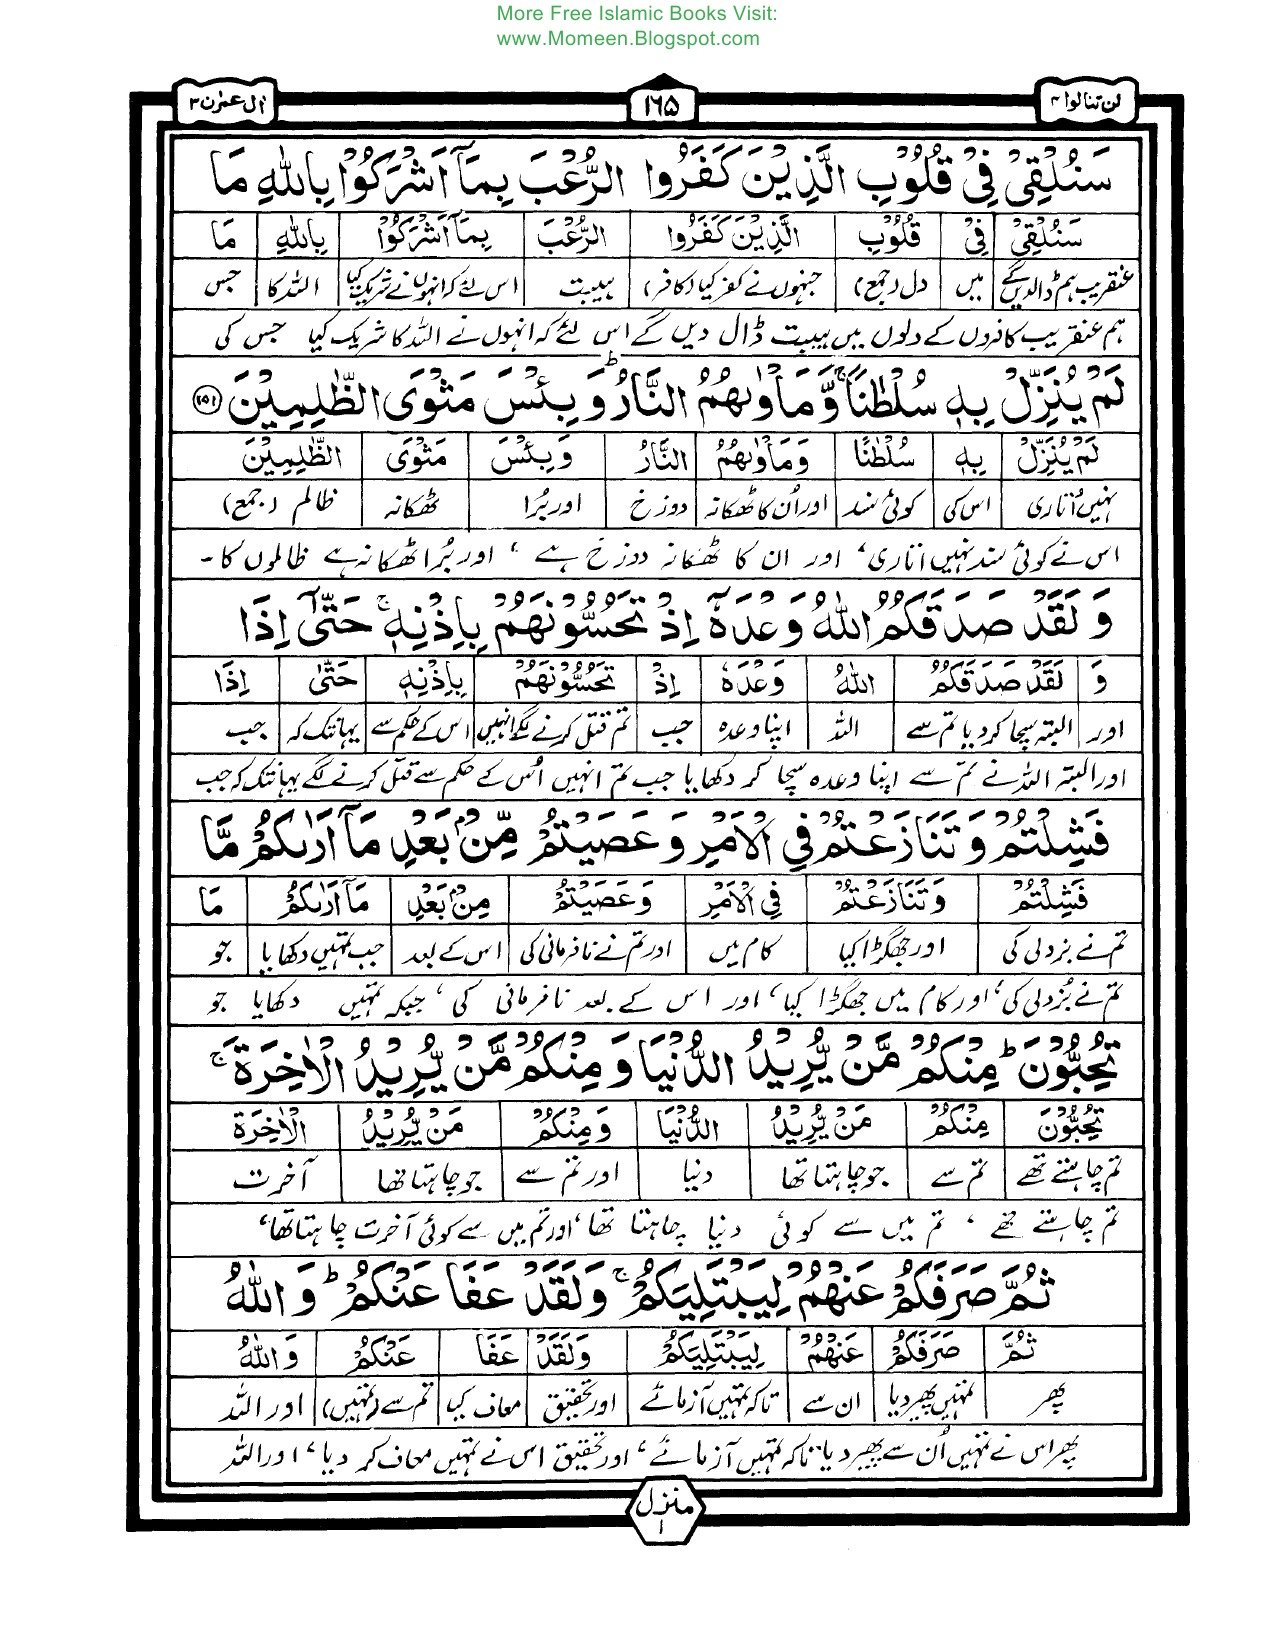 More Free Islamic Books Visit:
www.Momeen.Blogspot.com
لن تنالوا ۴
۱۶۵
اٰل عمرٰن ۳
سَنُلْقِیْ فِیْ قُلُوْبِ الَّذِیْنَ كَفَرُوا الرُّعْبَ بِمَاۤ اَشْرَكُوْا بِاللّٰهِ مَا
سَنُلْقِیْ فِیْ قُلُوْبِ الَّذِیْنَ كَفَرُوا الرُّعْبَ بِمَاۤ اَشْرَكُوْا بِاللّٰهِ مَا
عنقریب ہم ڈالدیں گے میں دل (جمع) جنہوں نے کفر کیا (کافر) ہیبت اس لئے کہ انہوں نے شریک کیا اللہ کا جس
ہم عنقریب کافروں کے دلوں میں ہیبت ڈال دیں گے اس لئے کہ انہوں نے اللہ کا شریک کیا جس کی
لَمْ یُنَزِّلْ بِهٖ سُلْطٰنًا ۚ وَّمَاْوٰىهُمُ النَّارُ ؕ وَبِئْسَ مَثْوَى الظّٰلِمِیْنَ ۱۵۱
لَمْ یُنَزِّلْ بِهٖ سُلْطٰنًا وَمَاْوٰىهُمُ النَّارُ وَبِئْسَ مَثْوَى الظّٰلِمِیْنَ
نہیں اُتاری اس کی کوئی سند اور اُن کا ٹھکانہ دوزخ اور بُرا ٹھکانہ ظالم (جمع)
اس نے کوئی سند نہیں اتاری، اور ان کا ٹھکانہ دوزخ ہے، اور بُرا ٹھکانہ ہے ظالموں کا ۔
وَلَقَدْ صَدَقَكُمُ اللّٰهُ وَعْدَهٗۤ اِذْ تَحُسُّوْنَهُمْ بِاِذْنِهٖ ۚ حَتّٰۤى اِذَا
وَ لَقَدْ صَدَقَكُمُ اللّٰهُ وَعْدَهٗ اِذْ تَحُسُّوْنَهُمْ بِاِذْنِهٖ حَتّٰى اِذَا
اور البتہ سچا کر دیا تم سے اللہ اپنا وعدہ جب تم قتل کرنے لگے انہیں اس کے حکم سے یہانتک کہ جب
اور البتہ اللہ نے تم سے اپنا وعدہ سچا کر دکھایا جب تم انہیں اُس کے حکم سے قتل کرنے لگے یہانتک کہ جب
فَشِلْتُمْ وَتَنَازَعْتُمْ فِی الْاَمْرِ وَعَصَیْتُمْ مِّنْۢ بَعْدِ مَاۤ اَرٰىكُمْ مَّا
فَشِلْتُمْ وَتَنَازَعْتُمْ فِی الْاَمْرِ وَعَصَیْتُمْ مِنْۢ بَعْدِ مَاۤ اَرٰىكُمْ مَا
تم نے بزدلی کی اور جھگڑا کیا کام میں اور تم نے نافرمانی کی اس کے بعد جب تمہیں دکھایا جو
تم نے بُزدلی کی، اور کام میں جھگڑا کیا، اور اس کے بعد نافرمانی کی، جبکہ تمہیں دکھایا جو
تُحِبُّوْنَ ؕ مِنْكُمْ مَّنْ یُّرِیْدُ الدُّنْیَا وَمِنْكُمْ مَّنْ یُّرِیْدُ الْاٰخِرَةَ ۚ
تُحِبُّوْنَ مِنْكُمْ مَنْ یُّرِیْدُ الدُّنْیَا وَمِنْكُمْ مَنْ یُّرِیْدُ الْاٰخِرَةَ
تم چاہتے تھے تم سے جو چاہتا تھا دنیا اور تم سے جو چاہتا تھا آخرت
تم چاہتے تھے، تم میں سے کوئی دنیا چاہتا تھا، اور تم میں سے کوئی آخرت چاہتا تھا،
ثُمَّ صَرَفَكُمْ عَنْهُمْ لِیَبْتَلِیَكُمْ ۚ وَلَقَدْ عَفَا عَنْكُمْ ؕ وَاللّٰهُ
ثُمَّ صَرَفَكُمْ عَنْهُمْ لِیَبْتَلِیَكُمْ وَلَقَدْ عَفَا عَنْكُمْ وَاللّٰهُ
پھر تمہیں پھیر دیا ان سے تاکہ تمہیں آزمائے اور تحقیق معاف کیا تم سے (تمہیں) اور اللہ
پھر اس نے تمہیں اُن سے پھیر دیا تاکہ تمہیں آزمائے، اور تحقیق اس نے تمہیں معاف کر دیا، اور اللہ
منزل
۱